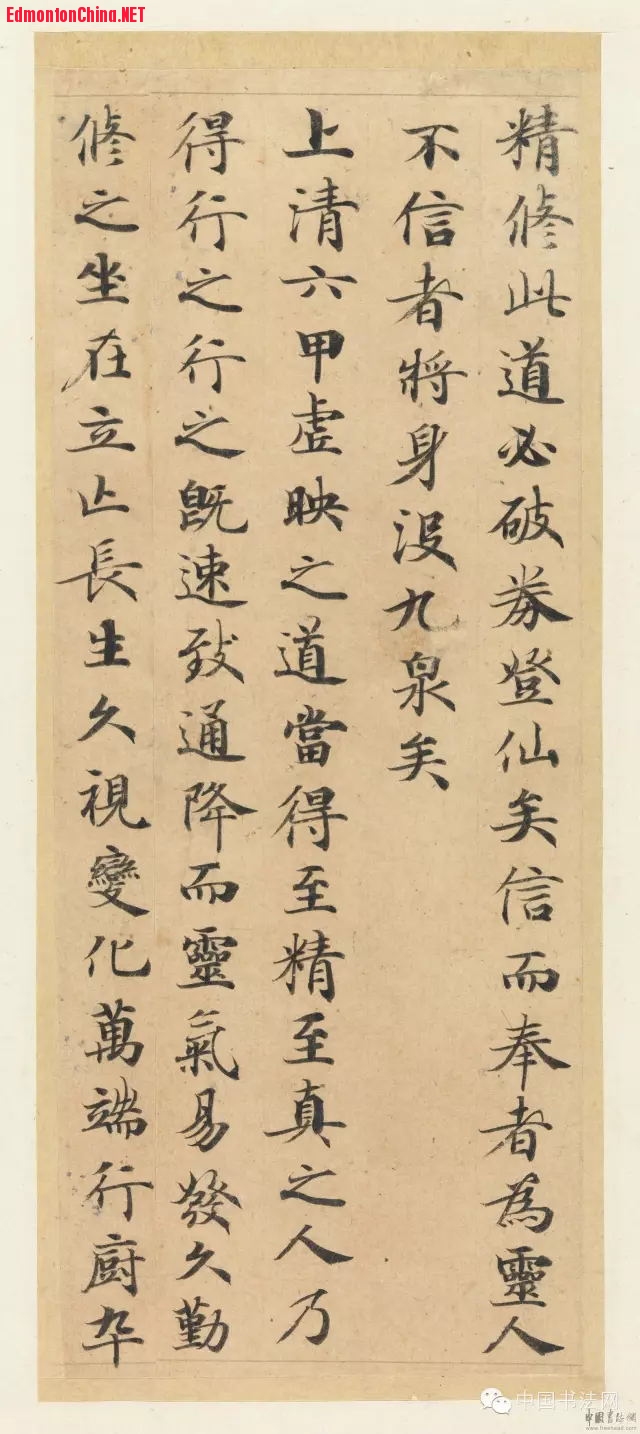 EdmontonChina.NET
精修此道必破券登仙矣信而奉者為靈人
不信者將身没九泉矣
上清六甲虛映之道當得至精至真之人乃
得行之行之既速致通降而靈氣易發久勤
修之坐在立亡長生久視變化萬端行廚卒
中国书法网
中國書法網